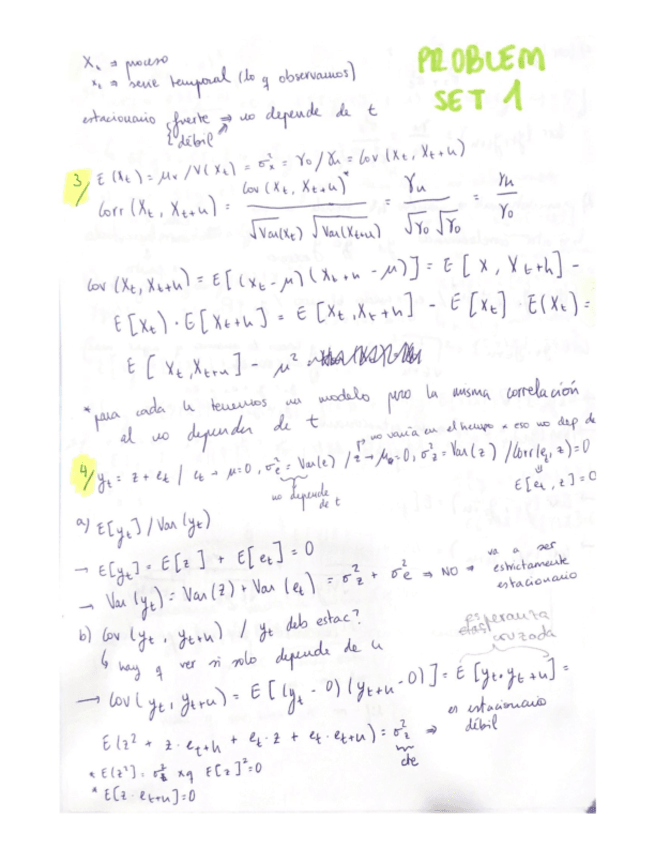 PROBLEM
SET 1
Xt ⇒ proceso
xt ⇒ serie temporal (lo q observamos)
estacionario { fuerte ⇒ no depende de t
débil ↗
3/ E(Xt) = μx / V(Xt) = σ²x = γ0 / γh = Cov(Xt, Xt+h)
Corr(Xt, Xt+h) = Cov(Xt, Xt+h)* / √Var(Xt) √Var(Xt+h) = γh / √γ0 √γ0 = γh / γ0
Cov(Xt, Xt+h) = E[(Xt - μ)(Xt+h - μ)] = E[X, Xt+h] -
E[Xt) · E[Xt+h] = E[Xt, Xt+h] - E[Xt] E(Xt) =
E[Xt, Xt+h] - μ² =
*para cada h tenemos un modelo pero la misma correlación
al no depender de t
no varía en el tiempo x eso no dep de
4/ yt = z + et / et → μ=0, σ²e = Var(e) / z → μ=0, σ²z = Var(z) / Corr(et, z)=0
no depende de t
E[et, z] = 0
a) E[yt] / Var(yt)
→ E[yt] = E[z] + E[et] = 0
→ Var(yt) = Var(z) + Var(et) = σ²z + σ²e ⇒ NO ⇒ va a ser estrictamente estacionario
b) Cov(yt, yt+h) / yt deb estac?
↳ hay q ver si solo depende de h
esperanza cruzada
→ Cov(yt, yt+h) = E[(yt - 0)(yt+h - 0)] = E[yt·yt+h] =
E(z² + z·et+h + et·z + et·et+h) = σ²z ⇒ es estacionario débil
cte
* E(z²) = σ²z xq E[z]²=0
* E[z·et+h]=0